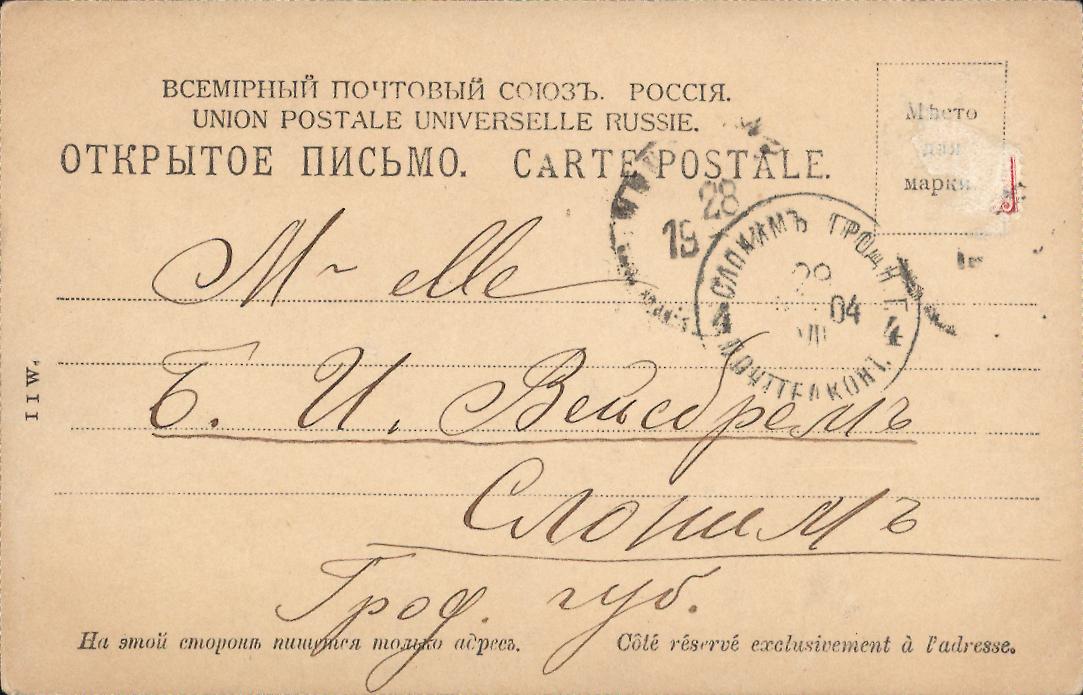 ВСЕМІРНЫЙ ПОЧТОВЫЙ СОЮЗЪ. РОССІЯ.
UNION POSTALE UNIVERSELLE RUSSIE.
ОТКРЫТОЕ ПИСЬМО. CARTE POSTALE.
Мѣсто
для
марки
28
19
СЛОНИМЪ ГРОДН. Г.
29
04
VIII
4 4
ПОЧТ.ТЕЛ.КОН.
M-elle
Б. И. Вейсбремъ
Слонимъ
Грод. губ.
На этой сторонѣ пишутся только адресъ.
Côté réservé exclusivement à l'adresse.
IIW.